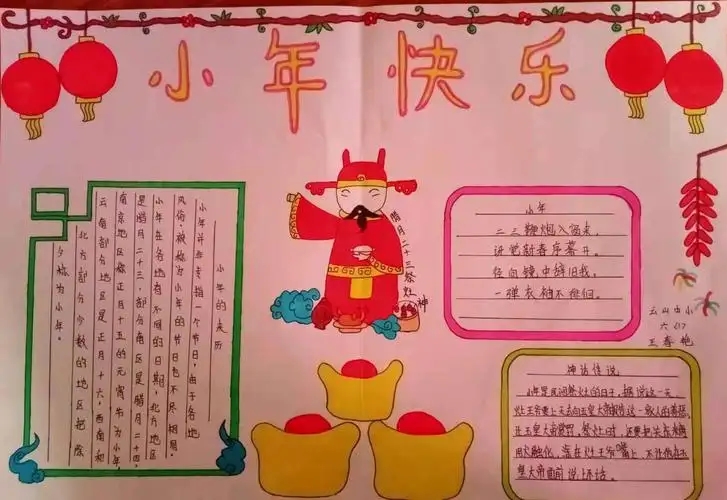 小年快乐
小年的来历
小年并非专指一个节日,由于各地
风俗,被称为小年的节日也不尽相同。
小年在各地有不同的日期,北方地区
是腊月二十三,部分地区是腊月二十四,
南京地区称正月十五的元宵节为小年,
云南部分地区是正月十六,西南和
北方部分少数的地区把除
夕称为小年。
腊月二十三祭灶神
小年
二三鞭炮入窗来,
讲觉新春序幕开。
轻向镜中辞旧我,
一弹衣袖不徘徊。
云山中小
六(1)
王春艳
神话传说
小年是民间祭灶的日子,据说这一天,
灶王爷要上天去向玉皇大帝报告这一家人的善恶,
让玉皇大帝赏罚。祭灶时,还要把关东糖
用火融化,涂在灶王爷嘴上,不让他在玉
皇大帝面前说上话。